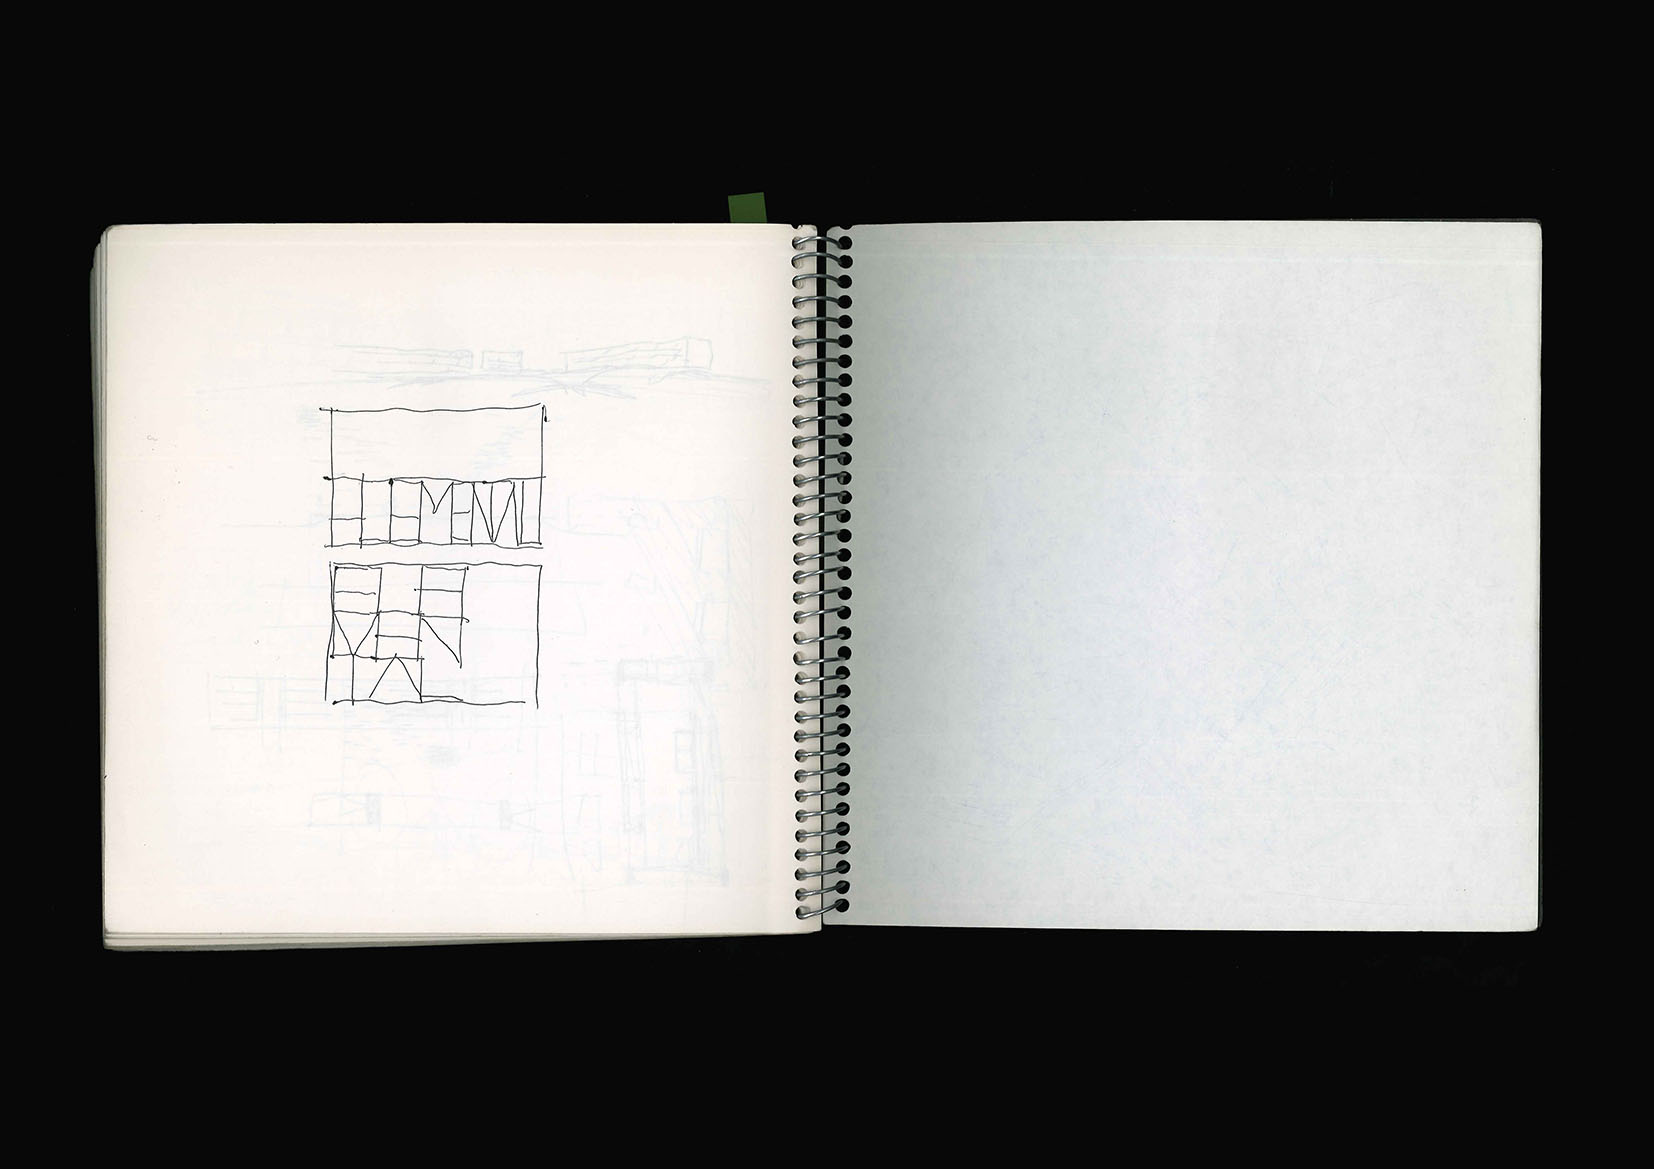 ELEMENTAL
ELE
MEN
TAL